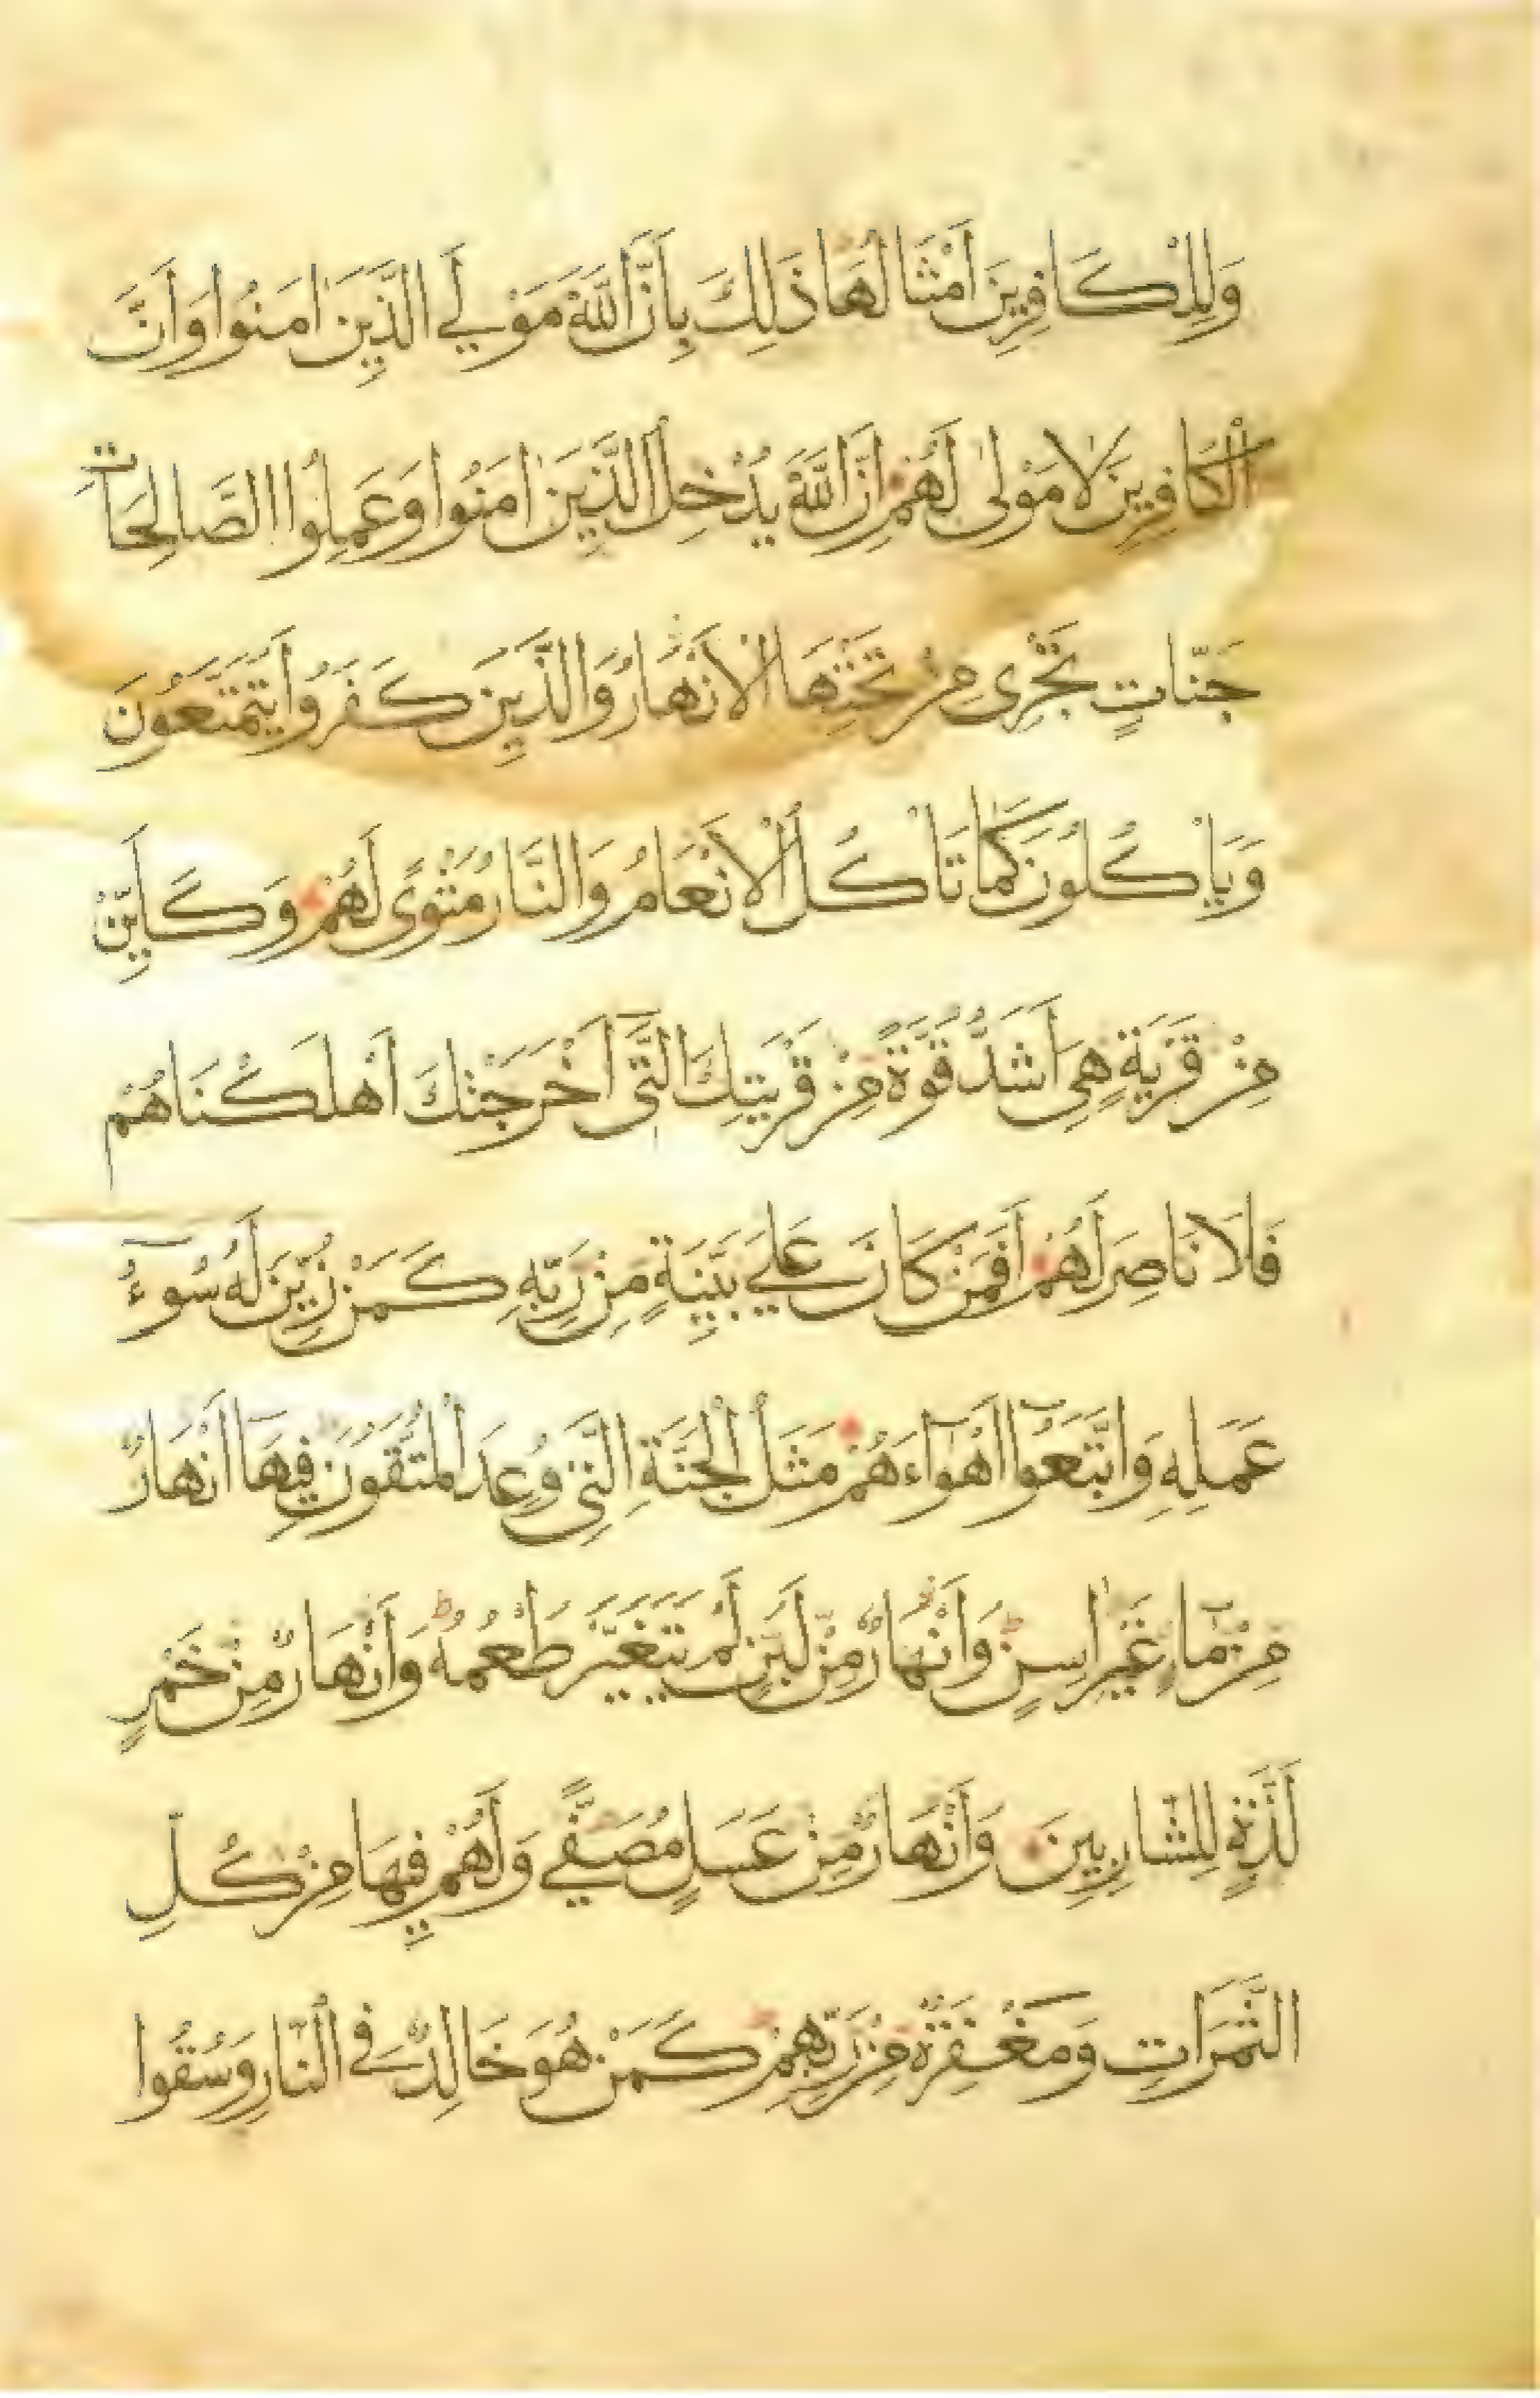 وَلِلْكَافِرِينَ اَمْثَالُهَا ذَلِكَ بِاَنَّ اللّٰهَ مَوْلَي الَّذِينَ اٰمَنُوا وَاَنَّ
الْكَافِرِينَ لَا مَوْلٰى لَهُمْ اِنَّ اللّٰهَ يُدْخِلُ الَّذِينَ اٰمَنُوا وَعَمِلُوا الصَّالِحَاتِ
جَنّاتٍ تَجْرِى مِنْ تَحْتِهَا الْاَنْهَارُ وَالَّذِينَ كَفَرُوا يَتَمَتَّعُونَ
وَيَاْكُلُونَ كَمَا تَاْكُلُ الْاَنْعَامُ وَالنَّارُ مَثْوًى لَهُمْ وَكَاَيِّنْ
مِنْ قَرْيَةٍ هِىَ اَشَدُّ قُوَّةً مِنْ قَرْيَتِكَ الَّتِى اَخْرَجَتْكَ اَهْلَكْنَاهُمْ
فَلَا نَاصِرَ لَهُمْ اَفَمَنْ كَانَ عَلَي بَيِّنَةٍ مِنْ رَبِّهِ كَمَنْ زُيِّنَ لَهُ سُوءُ
عَمَلِهِ وَاتَّبَعُوا اَهْوَاءَهُمْ مَثَلُ الْجَنَّةِ الَّتِى وُعِدَ الْمُتَّقُونَ فِيهَا اَنْهَارٌ
مِنْ مَاءٍ غَيْرِ اٰسِنٍ وَاَنْهَارٌ مِنْ لَبَنٍ لَمْ يَتَغَيَّرْ طَعْمُهُ وَاَنْهَارٌ مِنْ خَمْرٍ
لَذَّةٍ لِلشَّارِبِينَ وَاَنْهَارٌ مِنْ عَسَلٍ مُصَفًّي وَلَهُمْ فِيهَا مِنْ كُلِّ
الثَّمَرَاتِ وَمَغْفِرَةٌ مِنْ رَبِّهِمْ كَمَنْ هُوَ خَالِدٌ فِي النَّارِ وَسُقُوا